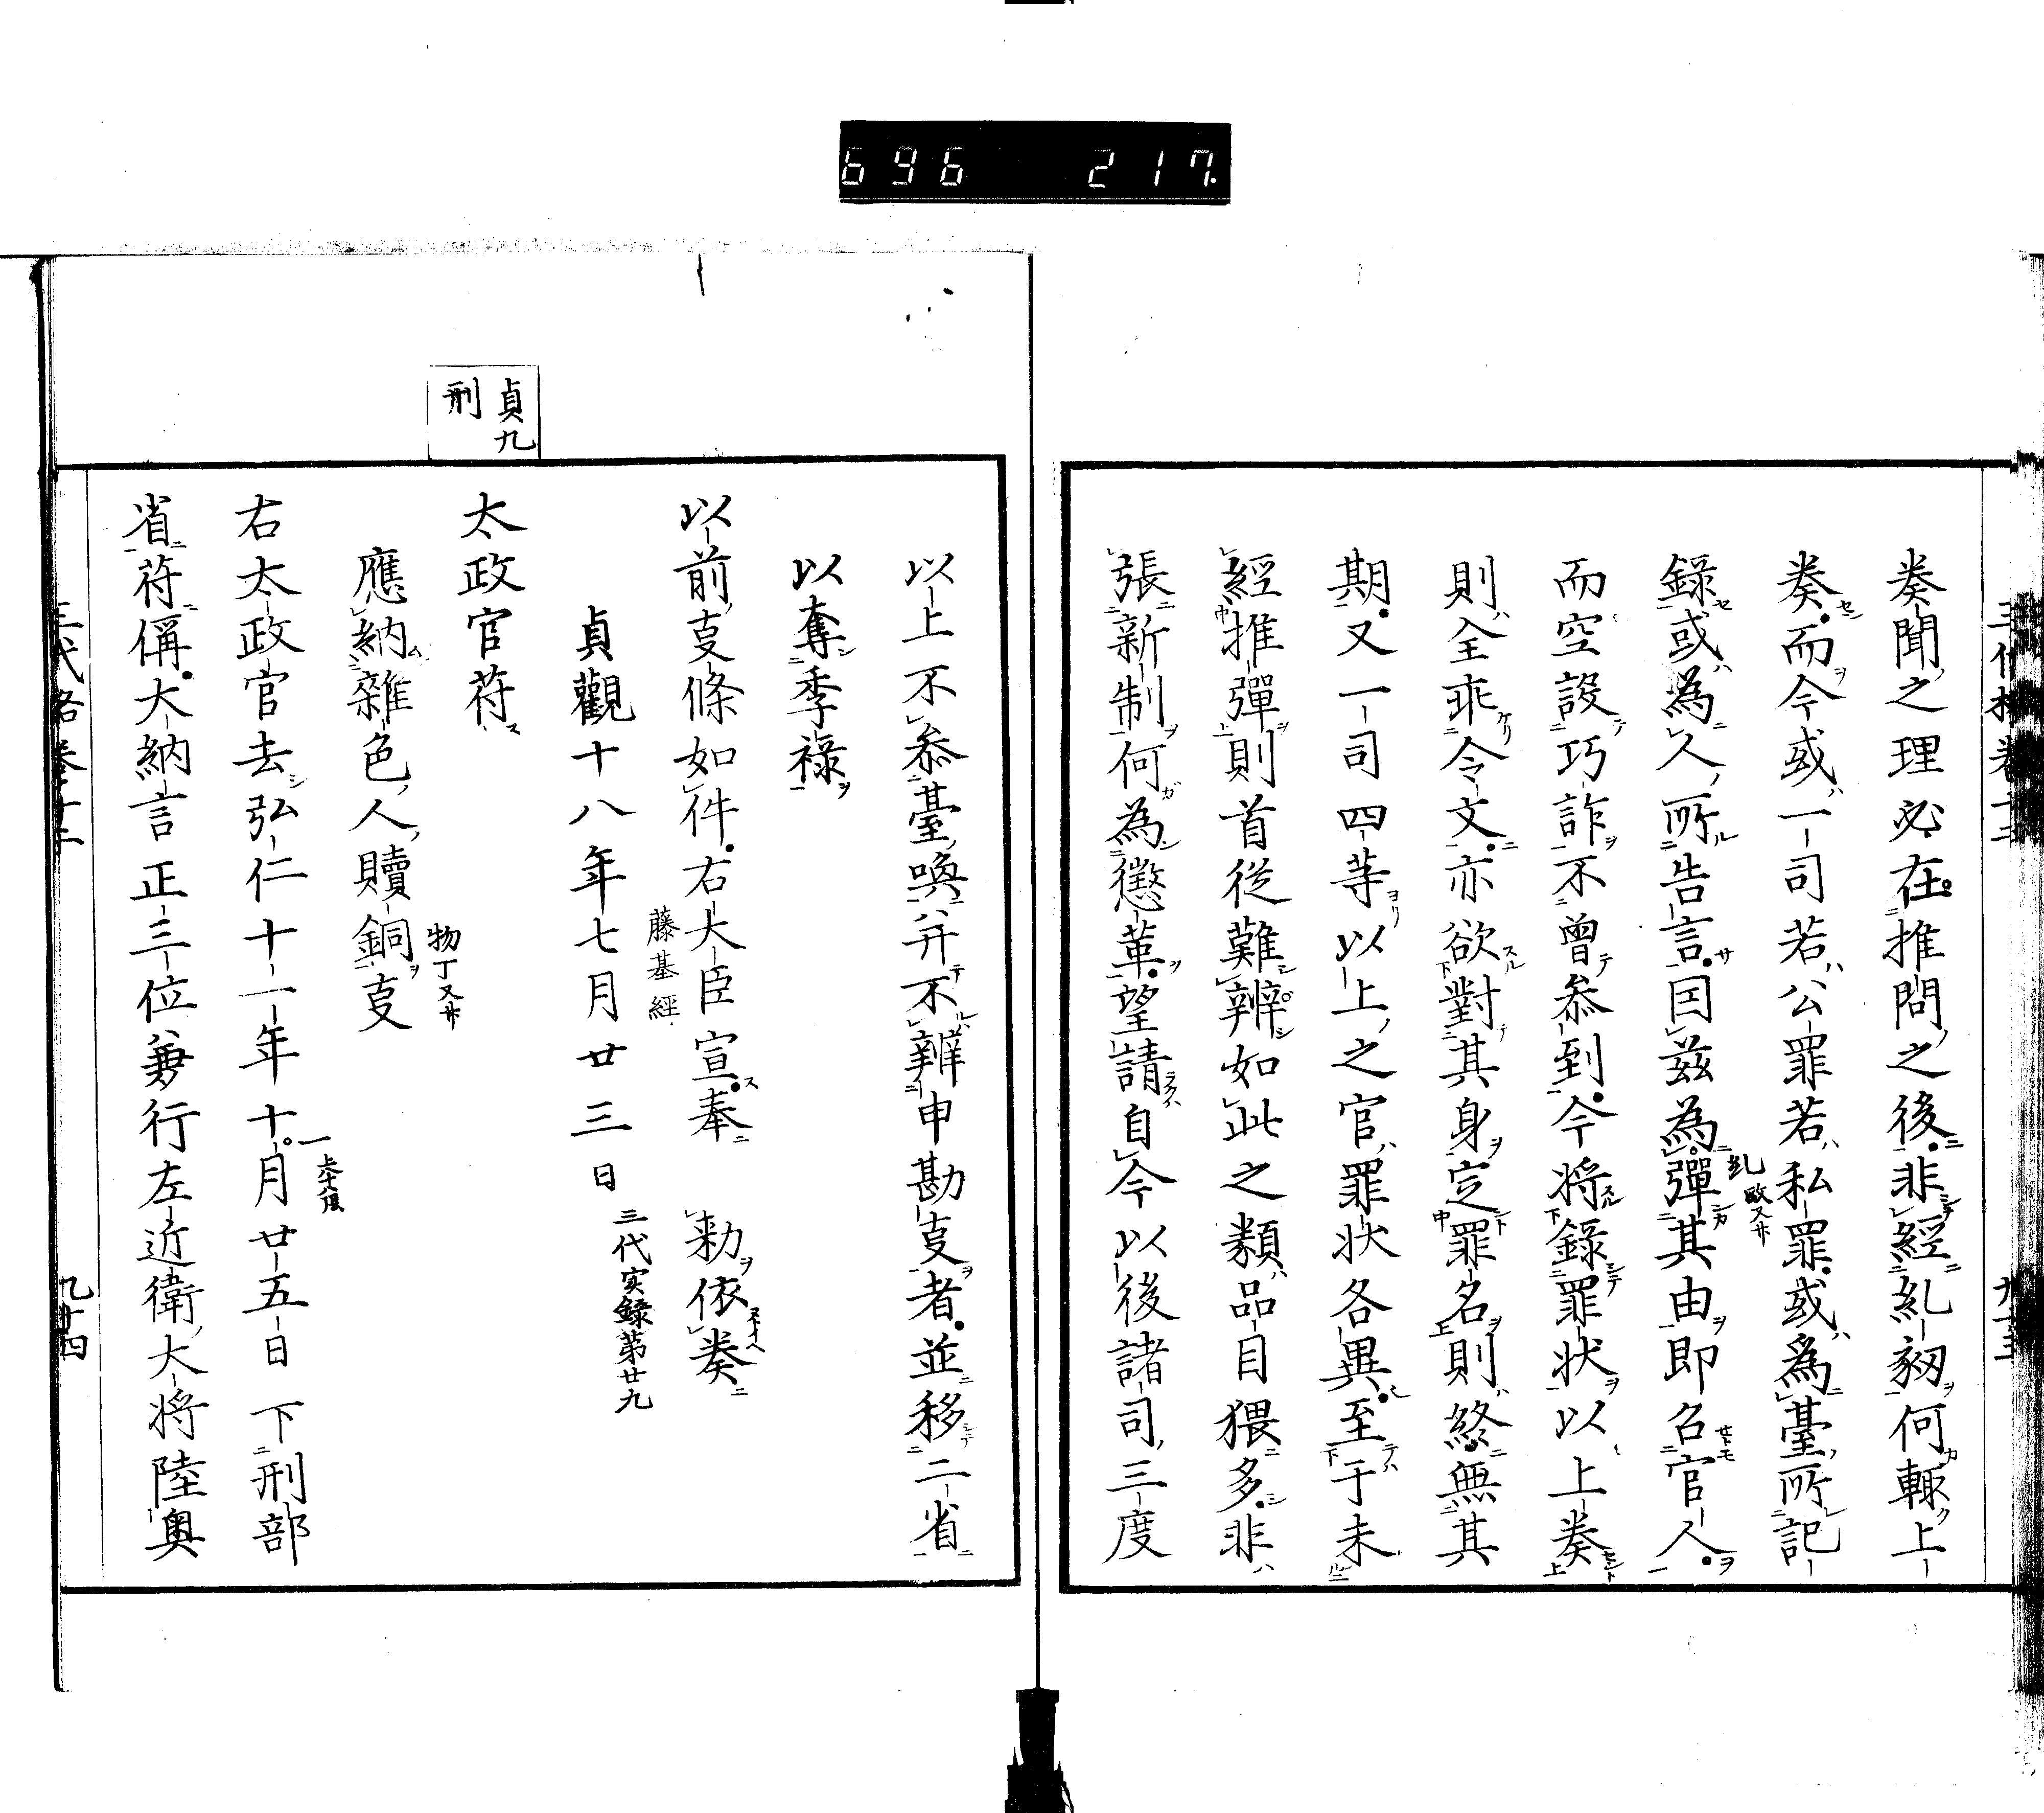 696 217
奏聞之理必在推問之後非經糺劾何輙上
奏而今或一司若公罪若私罪或爲臺所記
錄或為人所告言因茲為彈其由即召官人
而空設巧詐不曾叅到今将錄罪状以上奏
則全乖令文亦欲對其身定罪名則終無其
期又一司四等以上之官罪状各異至于未
經推彈則首從難辨如此之類品目猥多非
張新制何為懲革望請自今以後諸司三度
以上不叅臺喚并不辨申勘叓者並移二省
以奪季祿
以前叓條如件右大臣宣奉　勅依奏
藤基經
貞觀十八年七月廿三日
三代实録第廿九
貞九
刑
太政官符
應納雜色人贖銅叓
右太政官去弘仁十一年十月廿五日下刑部
省符偁大納言正三位兼行左近衛大将陸奥